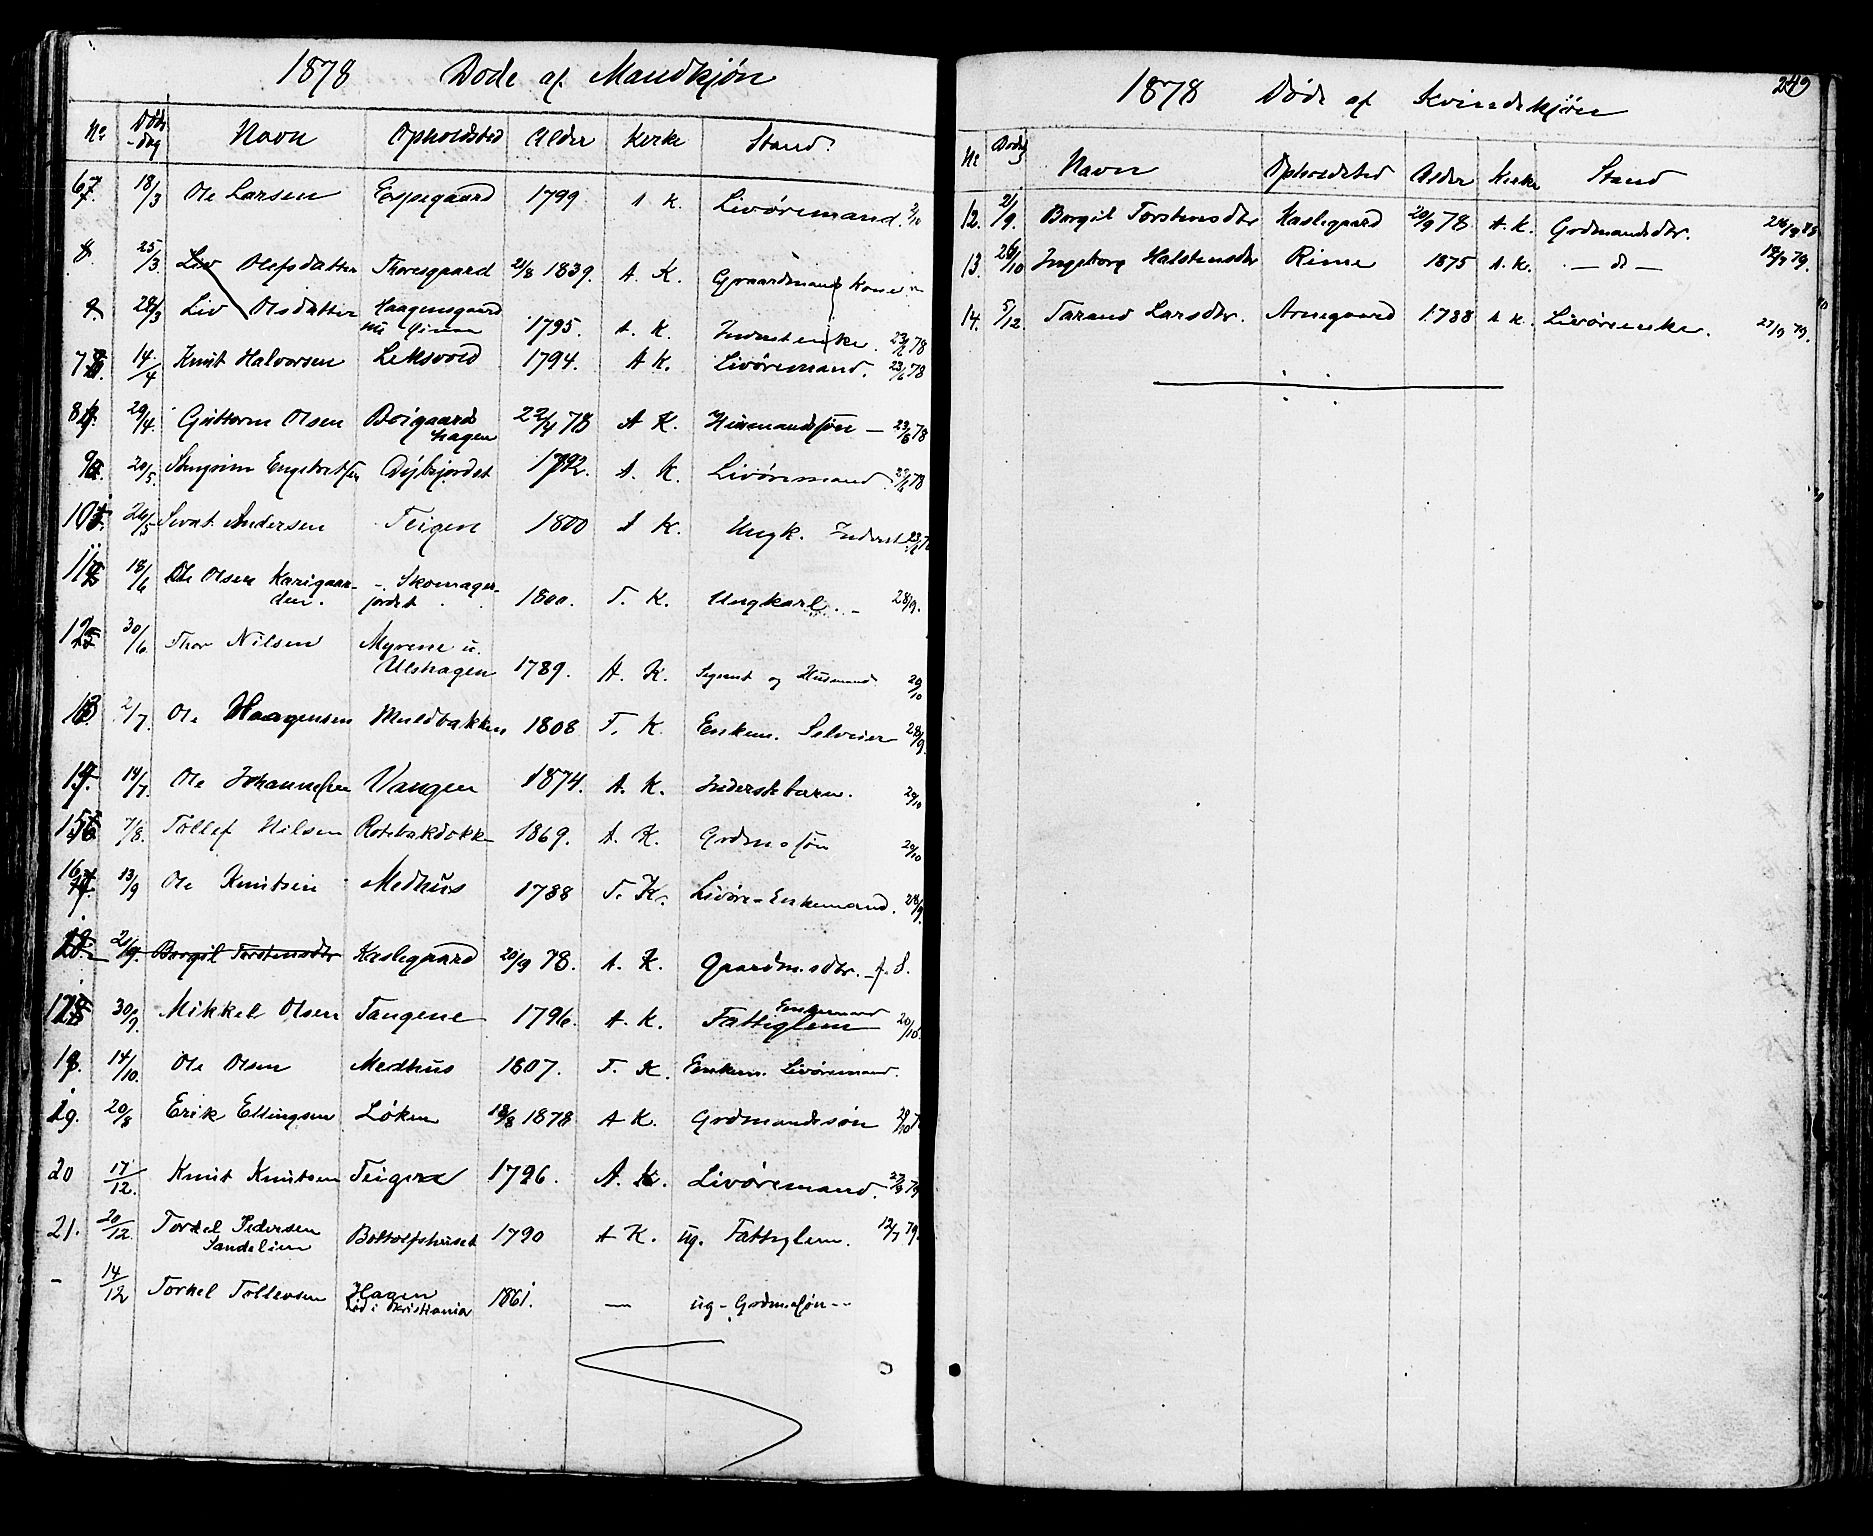 1878 Døde af Mandkjøn
No Døds-dag Navn Opholdsted Alder Kirke Stand
6 18/3 Ole Larsen Espegaard 1799 A K. Livøremand.
8 25/3 Liv Olefsdatter Thoresgaard 21/8 1839. A. K. Gaardmands Kone
9. 28/3 Liv Olsdatter Haagensgaard 1795. A. K. Inderstenke. 23/6 78
7 14/4 Knut Halvorsen Leksvold 1794. A K. Livøremand. 23/6 78
8 29/4. Guttorm Olsen Boigaards 22/4 78 A K. Husmandssøn — 23/6 78
hagen
9 20/5. Engebretsen 1792. A. K. Livøremand. 78
10 26/5 Andersen Teigen 1800 A K. Ungk. Inderst
11 18/6 Ole Olsen Karigaar- Skomager-
den. jordet 1800. T. K. Ungkarl. 28/9.
12 30/6 Thor Nilsen Myrene u.
Ulshagen 1789. A. K. og Husmand 20/10
13 2/7. Ole Haagensen Muldbakken 1808 T. K. Enkem. Selveier 28/9.
14. 14/7. Ole Johannessen Vangen 1874. A. K. Inderstebarn. 20/10
15 7/8. Tollef Nilsen 1869. A. K. Grdms søn 20/10
16 13/9 Ole Knutsen Medhus 1788 T. K. Livøre-Enkemand. 28/9.
21/9. Borgil Torstensdtr Haslegaard 20/9 78. A. K. Gaardm.sdtr.
17 30/9. Mikkel Olsen Tangene 1796. A. K. Enkemand
Fattiglem 20/10.
18. 14/10. Ole Olsen Medhus 1807. T. K. Enkem. Livøremand.
19. 20/8 Erik Ellingsen Løken 18/8 1878 A K. Grdmandssøn
20 17/12. Knut Knutsen Teigen 1796. A. K. Livøremand. 79
21. 20/12. Torkel Pedersen
Sandelien 1790 A K. ug. Fattiglem. 12/7 79.
— 14/12 Torkel Tollevsen Hagen
død i Kristiania 1861. — ug. Grdmssøn
1878 Døde af Kvindekjøn 249
No Dødsd Navn Opholdsted Alder Kirke Stand
12. 21/9. Borgil Torstensdtr Haslegaard 20/9 78. A. K. Grdmandsdtr.
13. 26/10 Ingeborg Halstensdtr Rime 1875 A. K. — d — 12/7 79.
14. 5/12. Larsdtr. Arnegaard 1788 A K. Livørenke. 79.